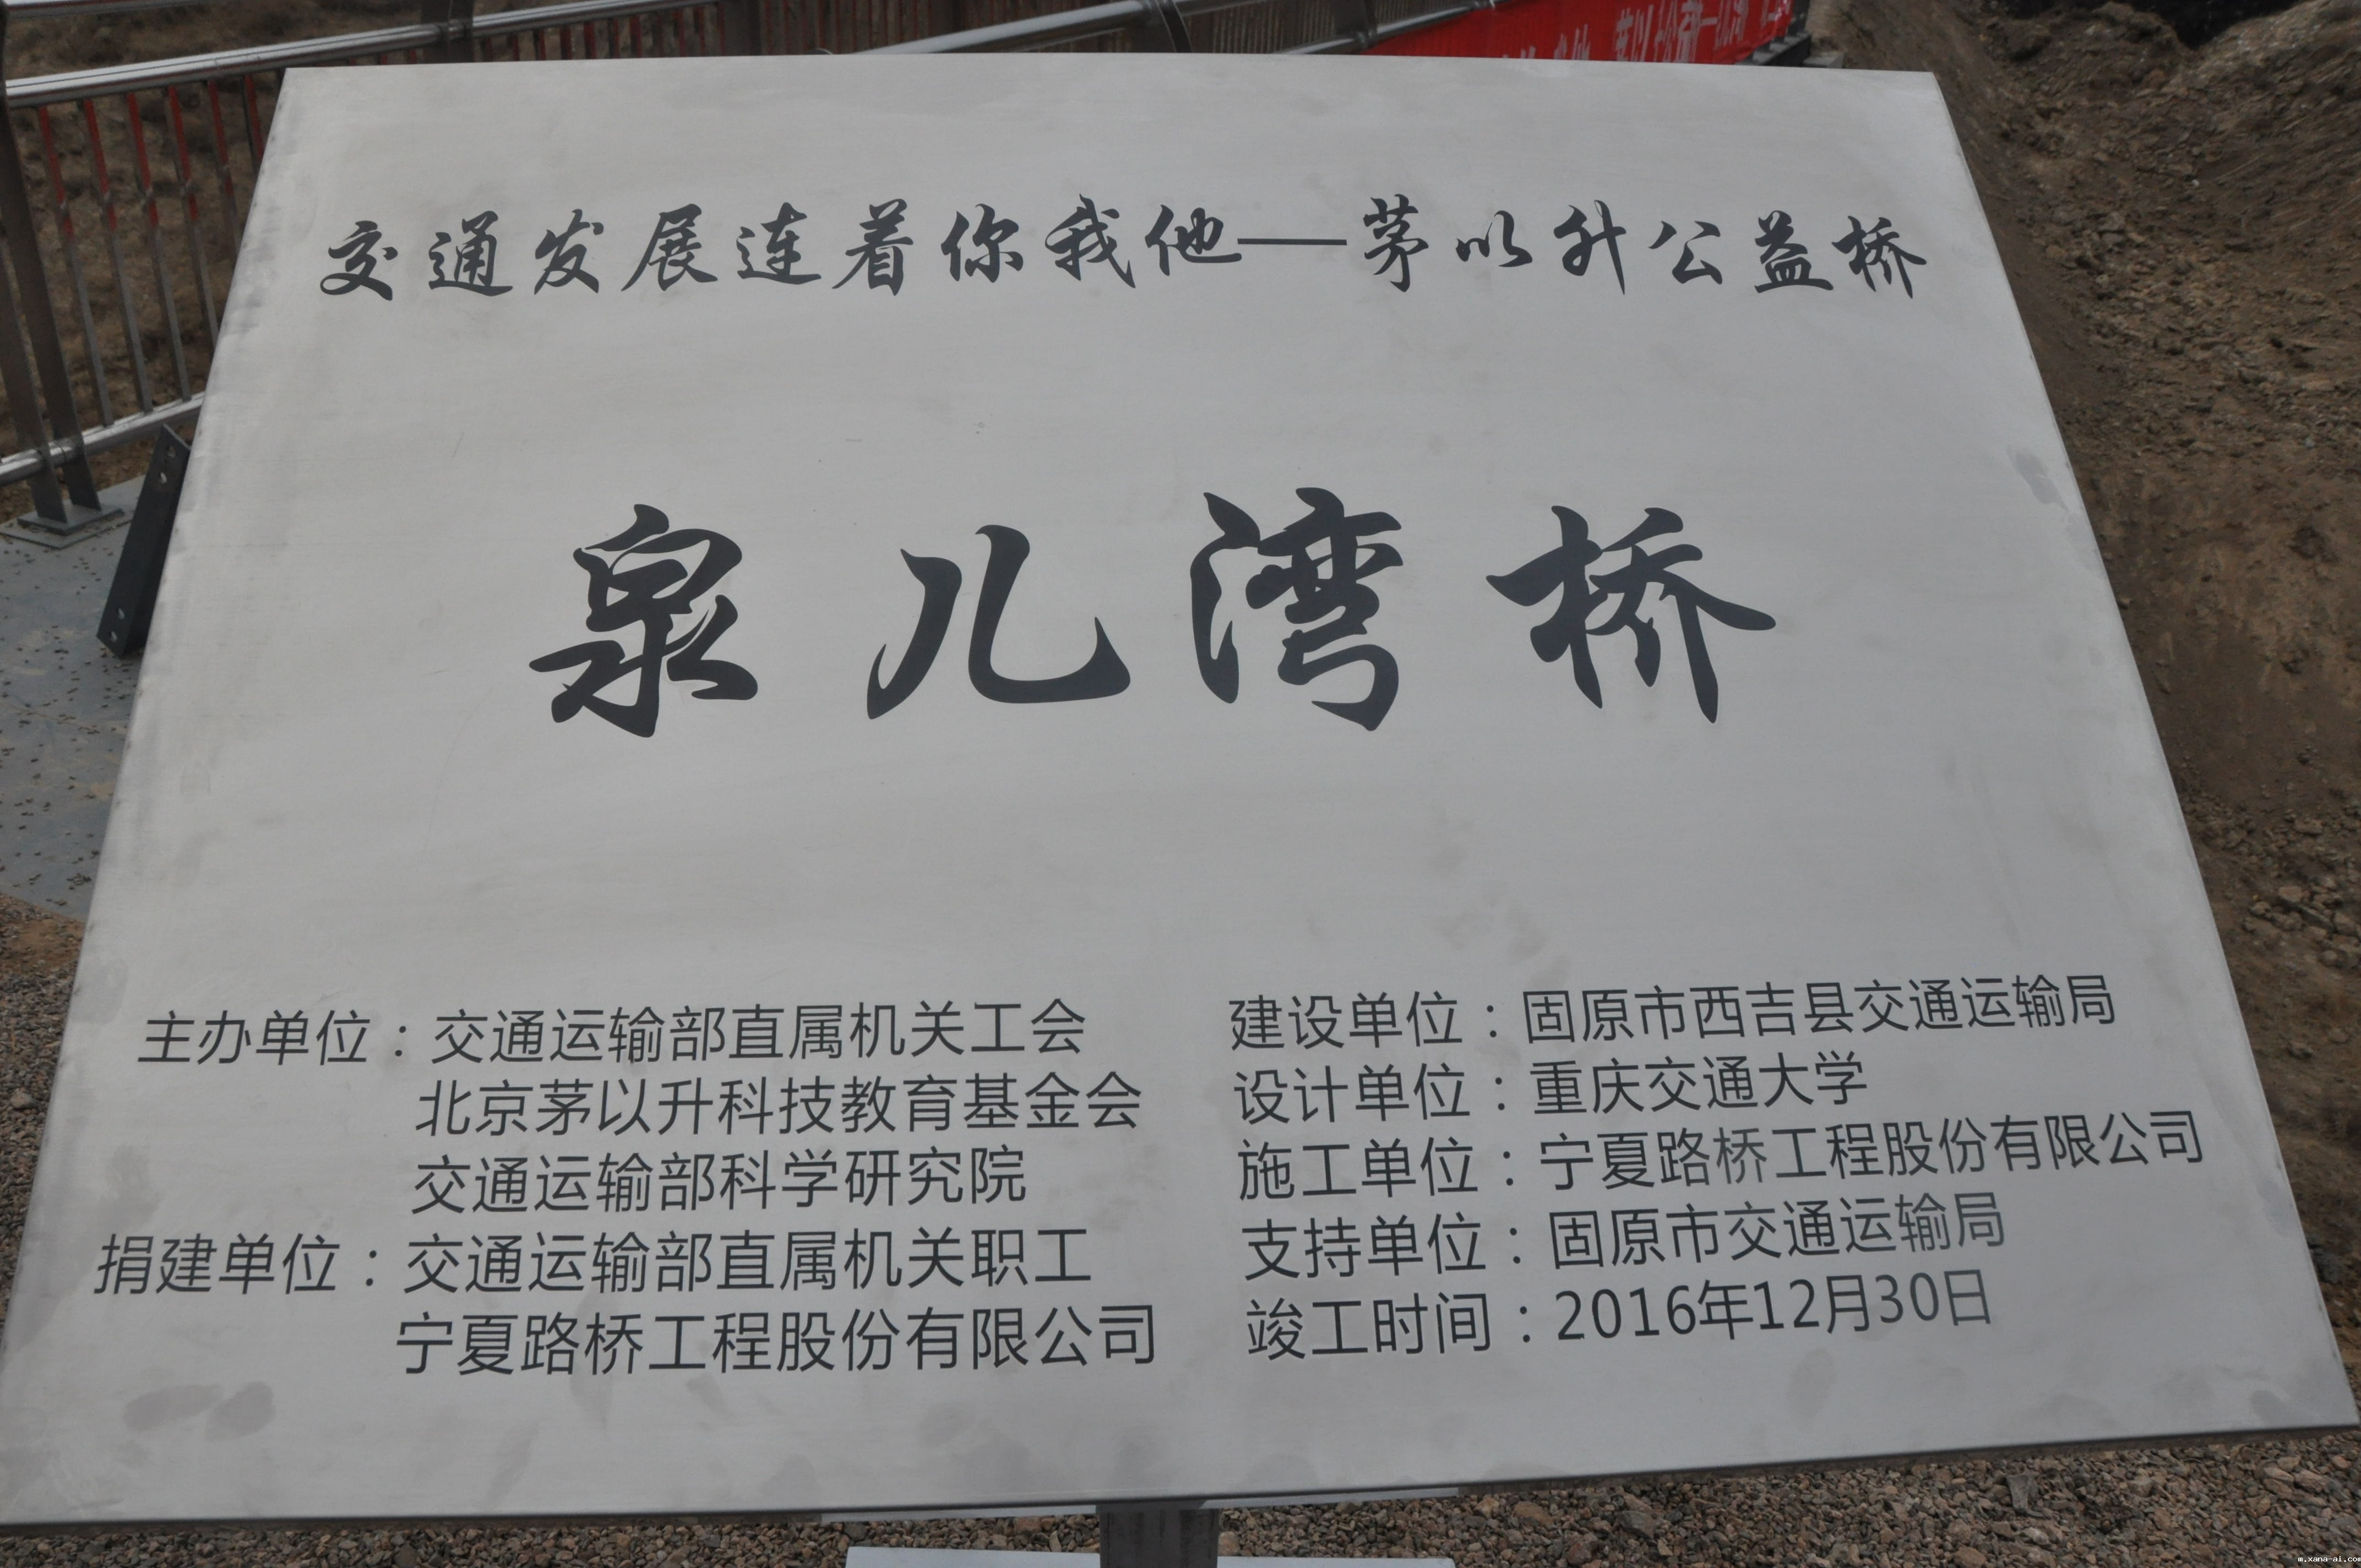 交通发展连着你我他——茅以升公益桥
泉儿湾桥
主办单位：交通运输部直属机关工会
北京茅以升科技教育基金会
交通运输部科学研究院
捐建单位：交通运输部直属机关职工
宁夏路桥工程股份有限公司
建设单位：固原市西吉县交通运输局
设计单位：重庆交通大学
施工单位：宁夏路桥工程股份有限公司
支持单位：固原市交通运输局
竣工时间：2016年12月30日
m.xana-ai.com